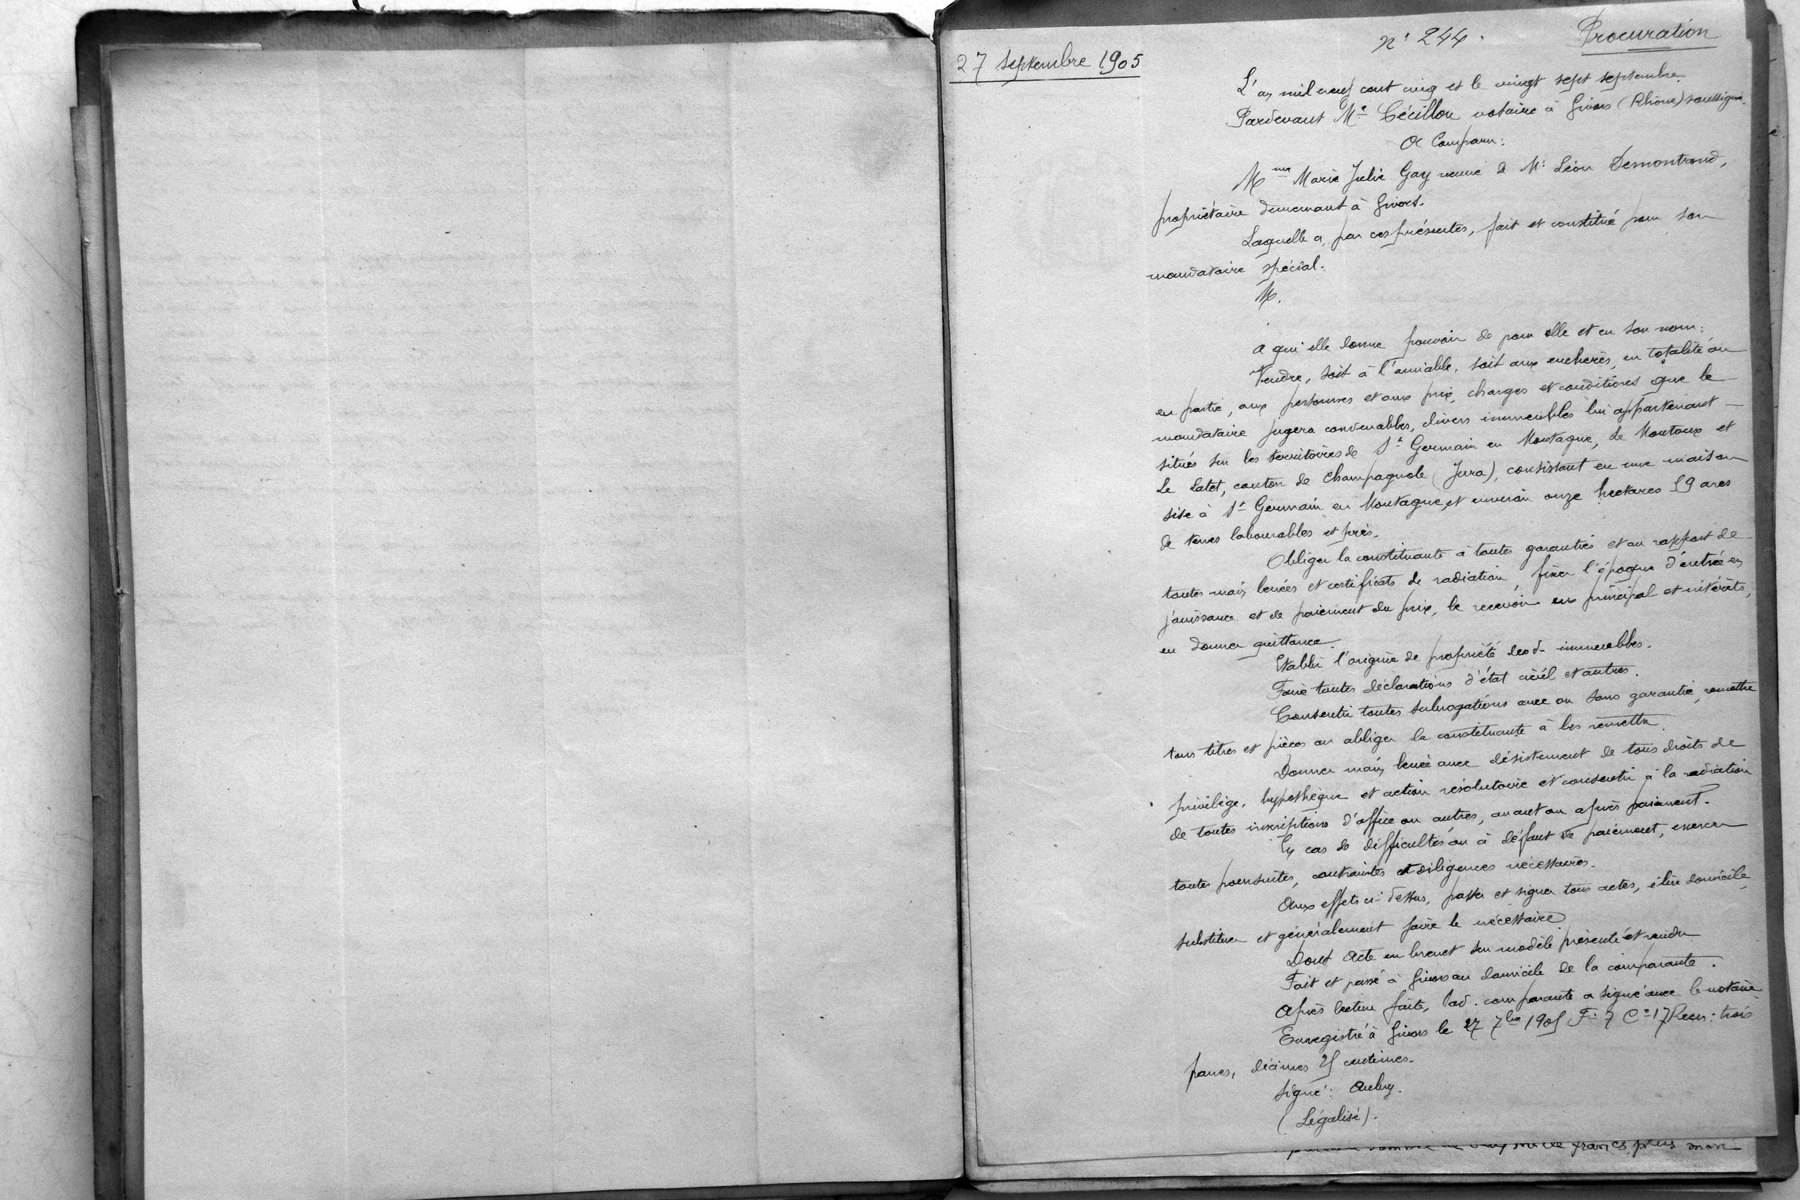 27 Septembre 1905
N° 244.
Procuration
L'an mil neuf cent cinq et le vingt sept septembre
Pardevant Me Cécillon notaire à Givors (Rhône) soussigné.
A Comparu:
Mme Marie Julie Gay veuve de Mr Léon Demontrond,
propriétaire demeurant à Givors.
Laquelle a, par ces présentes, fait et constitué pour son
mandataire spécial.
M.
à qui elle donne pouvoir de pour elle et en son nom:
Vendre, soit à l'amiable, soit aux enchères, en totalité ou
en partie, aux personnes et aux prix, charges et conditions que le
mandataire jugera convenables, divers immeubles lui appartenant
situés sur les territoires de St Germain en Montagne, de Montoux et
Le Latet, canton de Champagnole (Jura), consistant en une maison
sise à St Germain en Montagne et environ onze hectares 59 ares
de terres labourables et prés.
Obliger la constituante à toutes garanties et au rapport de
toutes main levées et certificats de radiation, fixer l'époque d'entrée en
jouissance et de paiement du prix, le recevoir en principal et intérêts,
en donner quittance.
Etablir l'origine de propriété desd. immeubles.
Faire toutes déclarations d'état civil et autres.
Consentir toutes subrogations avec ou sans garantie, remettre
tous titres et pièces ou obliger la constituante à les remettre
Donner main levée avec désistement de tous droits de
privilège, hypothèque et action résolutoire et consentir à la radiation
de toutes inscriptions d'office ou autres, avant ou après paiement.
En cas de difficultés ou à défaut de paiement, exercer
toutes poursuites, contraintes et diligences nécessaires.
Aux effets ci-dessus, passer et signer tous actes, élire domicile,
substituer et généralement faire le nécessaire
Dont Acte en brevet sur modèle présenté et rendu
Fait et passé à Givors au domicile de la comparante.
Après lecture faite, lad. comparante a signé avec le notaire
Enregistré à Givors le 27 7bre 1905 F° 7 C° 17 Recu: trois
francs, décimes 75 centimes.
Signé: Aubry.
(Légalisé).
francs plus